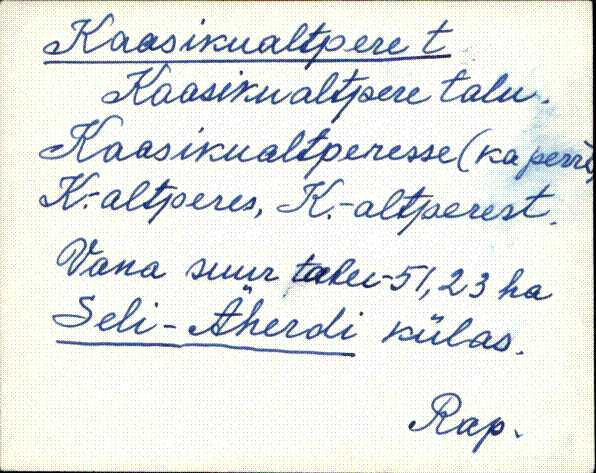 Kaasikualtpere t
Kaasikualtpere talu.
Kaasikualtperesse (ka perre)
K.-altperes, K.-altperest.
Vana suur talu - 51,23 ha
Seli-Äherdi külas.
Rap.